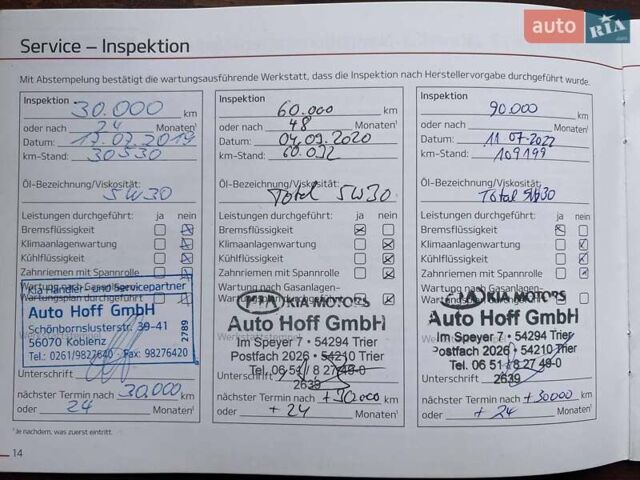 auto RIA .com
Service – Inspektion
Mit Abstempelung bestätigt die wartungsausführende Werkstatt, dass die Inspektion nach Herstellervorgabe durchgeführt wurde.
Inspektion
30.000 km
oder nach 24 Monaten¹
Datum: 17.07.2019
km-Stand: 30530
Öl-Bezeichnung/Viskosität:
5W30
Leistungen durchgeführt: ja nein
Bremsflüssigkeit
Klimaanlagenwartung
Kühlflüssigkeit
Zahnriemen mit Spannrolle
Wartung nach Gasanlagen-
Wartungsplan durchgeführt
Kia Händler- und Servicepartner
Auto Hoff GmbH
Schönbornslusterstr. 39-41
56070 Koblenz
Tel.: 0261/9827640 Fax: 98276420
2789
Unterschrift
nächster Termin nach 30.000 km
oder 24 Monaten¹
Inspektion
60.000 km
oder nach 48 Monaten¹
Datum: 04.09.2020
km-Stand: 60.032
Öl-Bezeichnung/Viskosität:
Total 5W30
Leistungen durchgeführt: ja nein
Bremsflüssigkeit
Klimaanlagenwartung
Kühlflüssigkeit
Zahnriemen mit Spannrolle
Wartung nach Gasanlagen-
Wartungsplan durchgeführt
KIA KIA MOTORS
Auto Hoff GmbH
Im Speyer 7 • 54294 Trier
Postfach 2026 • 54210 Trier
Tel. 06 51 / 8 27 48-0
2639
Unterschrift
nächster Termin nach +30.000 km
oder +24 Monaten¹
Inspektion
90.000 km
oder nach Monaten¹
Datum: 11.07.2022
km-Stand: 109199
Öl-Bezeichnung/Viskosität:
Total 5W30
Leistungen durchgeführt: ja nein
Bremsflüssigkeit
Klimaanlagenwartung
Kühlflüssigkeit
Zahnriemen mit Spannrolle
Wartung nach Gasanlagen-
Wartungsplan durchgeführt
KIA MOTORS
Auto Hoff GmbH
Im Speyer 7 • 54294 Trier
Postfach 2026 • 54210 Trier
Tel. 06 51 / 8 27 48-0
2639
Unterschrift
nächster Termin nach +30000 km
oder +24 Monaten¹
¹Je nachdem, was zuerst eintritt.
14